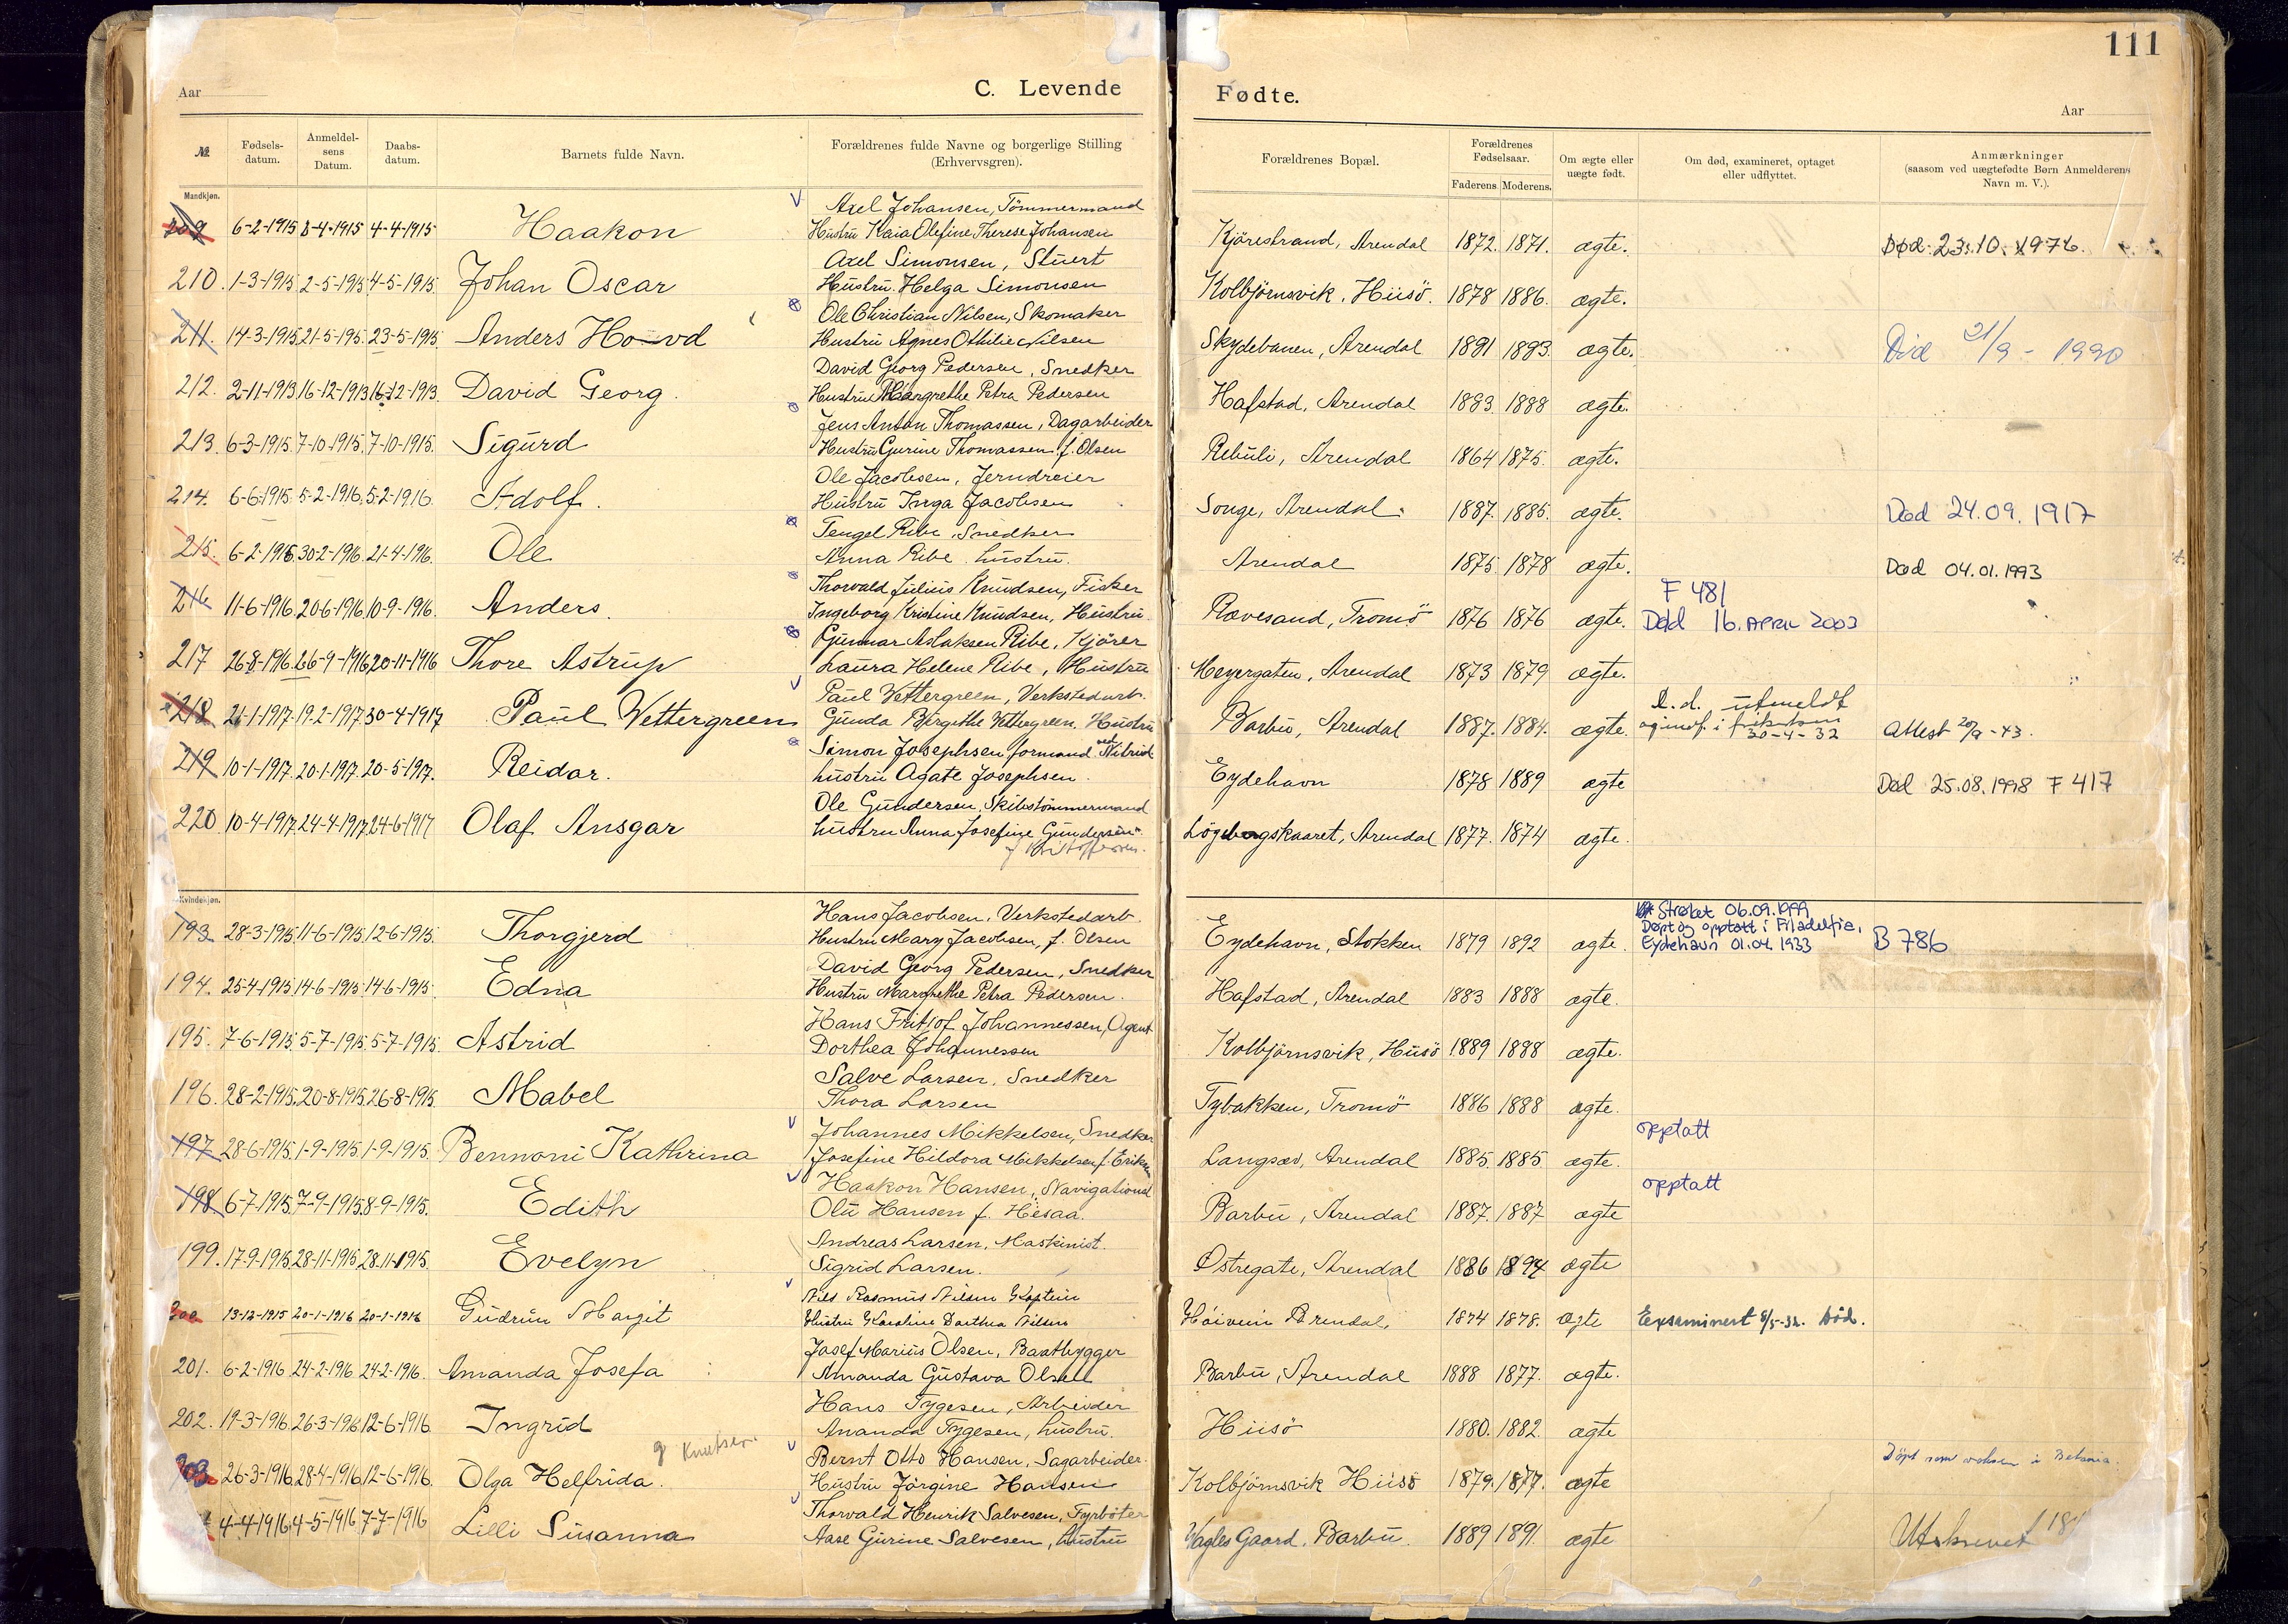 111
Aar
C. Levende
Fødte.
Aar
№
Fødsels-
datum.
Anmeldel-
sens
Datum.
Daabs-
datum.
Barnets fulde Navn.
Forældrenes fulde Navne og borgerlige Stilling
(Erhvervsgren).
Forældrenes Bopæl.
Forældrenes
Fødselsaar.
Faderens. Moderens.
Om ægte eller
uægte født.
Om død, examineret, optaget
eller udflyttet.
Anmærkninger
(saasom ved uægtefødte Børn Anmelderens
Navn m. V.).
Mandkjøn.
Axel Johansen, Tömmermand
209 6-2-1915 3-4-1915 4-4-1915 Haakon Hustru Kaia Olefine Therese Johansen Kjörestrand, Arendal 1872. 1871. ægte. Død. 23.10.1976.
Axel Simonsen, Stuert
210. 1-3-1915 2-5-1915 4-5-1915. Johan Oscar Hustru Helga Simonsen Kolbjörnsvik, Hiisö. 1878 1886. ægte.
Ole Christian Nilsen, Skomaker
211. 14-3-1915 21-5-1915. 23-5-1915. Anders Hovd Hustru Agnes Othilie Nilsen Skydebanen, Arendal 1891 1893. ægte. Død 21/9 - 1990
David Georg Pedersen, Snedker
212. 2-11-1913 16-12-1913 16-12-1913. David Georg. Hustru Margrethe Petra Pedersen Hafstad, Arendal 1883 1888 ægte.
Jens Anton Thomassen, Dagarbeider
213. 6-3-1915. 7-10-1915. 7-10-1915. Sigurd Hustru Gurine Thomassen f. Olsen Rebuli, Arendal 1864 1875. ægte.
Ole Jacobsen, Jerndreier
214. 6-6-1915. 5-2-1916. 5-2-1916. Adolf. Hustru Inga Jacobsen Songe, Arendal. 1887. 1885. ægte. Død 24.09.1917
Tengel Ribe, Snedker
215. 6-2-1916. 30-2-1916. 21-4-1916. Ole Anna Ribe hustru. Arendal 1875. 1878 ægte. Død 04.01.1993
Thorvald Julius Knudsen, Fisker F 481
216 11-6-1916. 20-6-1916. 10-9-1916. Anders. Ingeborg Kristine Knudsen, Hustru. Rævesand, Tromö 1876 1876 ægte. Død 16. APRIL 2003
Gunnar Aslaksen Ribe, Kjörer
217 26-8-1916. 26-9-1916 20-11-1916 Thore Astrup Laura Helene Ribe, Hustru Meyergaten, Arendal 1873 1879 ægte.
Paul Vettergreen, Verkstedarb. l.d. utmeldt
218 21-1-1917. 19-2-1917. 30-4-1917 Paul Vettergreen Gunda Birgithe Vettergreen. Hustru Barbu, Arendal 1887. 1884. ægte. og indf. i frikirken
30-4-32 Attest 20/9-43.
Simon Josephsen formand ved Nitrid
219 10-1-1917. 20-1-1917. 20-5-1917. Reidar. hustru Agate Josephsen. Eydehavn 1878 1889 ægte Død 25.08.1998 F 417
Ole Gundersen, Skibstömmermand
220 10-4-1917. 24-4-1917. 24-6-1917 Olaf Ansgar hustru Anna Josefine Gundersen. Lögebergskaaret, Arendal 1877. 1874 ægte.
f. Kristoffersen.
Kvindekjøn.
Hans Jacobsen, Verkstedarb. Strøket 06.09.1999
193. 28-3-1915. 11-6-1915. 12-6-1915. Thorgjerd Hustru Mary Jacobsen, f. Olsen Eydehavn, Stokken 1879 1892 ægte. Døpt og opptatt i Filadelfia,
Eydehavn 01.04.1933 B 786
David Georg Pedersen, Snedker
194. 25-4-1915. 14-6-1915. 14-6-1915. Edna Hustru Margrethe Petra Pedersen. Hafstad, Arendal 1883 1888 ægte.
Hans Fritjof Johannessen, Agent
195. 7-6-1915. 5-7-1915. 5-7-1915. Astrid Dorthea Johannessen Kolbjörnsvik, Hiisö 1889 1888 ægte.
Salve Larsen, Snedker
196. 28-2-1915. 20-8-1915. 26-8-1915 Mabel Thora Larsen Tybakken, Tromö 1886 1888 ægte.
Johannes Mikkelsen, Snedker opptatt
197 28-6-1915. 1-9-1915. 1-9-1915. Bennoni Kathrina Josefine Hildora Mikkelsen f. Eriksen Langsæ, Arendal 1885. 1885. ægte.
Haakon Hansen, opptatt
198 6-7-1915. 7-9-1915. 8-9-1915. Edith Olu Hansen f. Hesaa. Barbu, Arendal 1887. 1887 ægte
Andreas Larsen, Maskinist.
199. 17-9-1915. 28-11-1915. 28-11-1915. Evelyn Sigrid Larsen. Østregate, Arendal 1886 1894 ægte
Nils Rasmus Nilsen Kaptein
200 13-12-1915 20-1-1916 20-1-1916 Gudrun Margit Hustru Karoline Dorthea Nilsen Höiveien Arendal, 1874 1878. Ægte Exsaminert 8/5-32. Död.
Josef Marius Olsen, Baatbygger
201. 6-2-1916 24-2-1916 24-2-1916. Amanda Josefa Amanda Gustava Olsen Barbu, Arendal 1888 1877. ægte.
Hans Tygesen, Arbeider
202. 19-3-1916. 26-3-1916 12-6-1916. Ingrid Amanda Tygesen, hustru. Hiisö 1880. 1882. ægte
g Knutsen. Bernt Otto Hansen, Sagarbeider. Döpt som voksen i Betania.
203 26-3-1916. 28-4-1916 12-6-1916. Olga Helfrida. Hustru Jörgine Hansen Kolbjörnsvik Hiisö 1879. 1877. ægte
Thorvald Henrik Salvesen, Fyrböter
4-4-1916. 4-5-1916 7-7-1916 Lilli Susanna Aase Gurine Salvesen, hustru Vagles Gaard, Barbu. 1889 1891. ægte Utskrevet